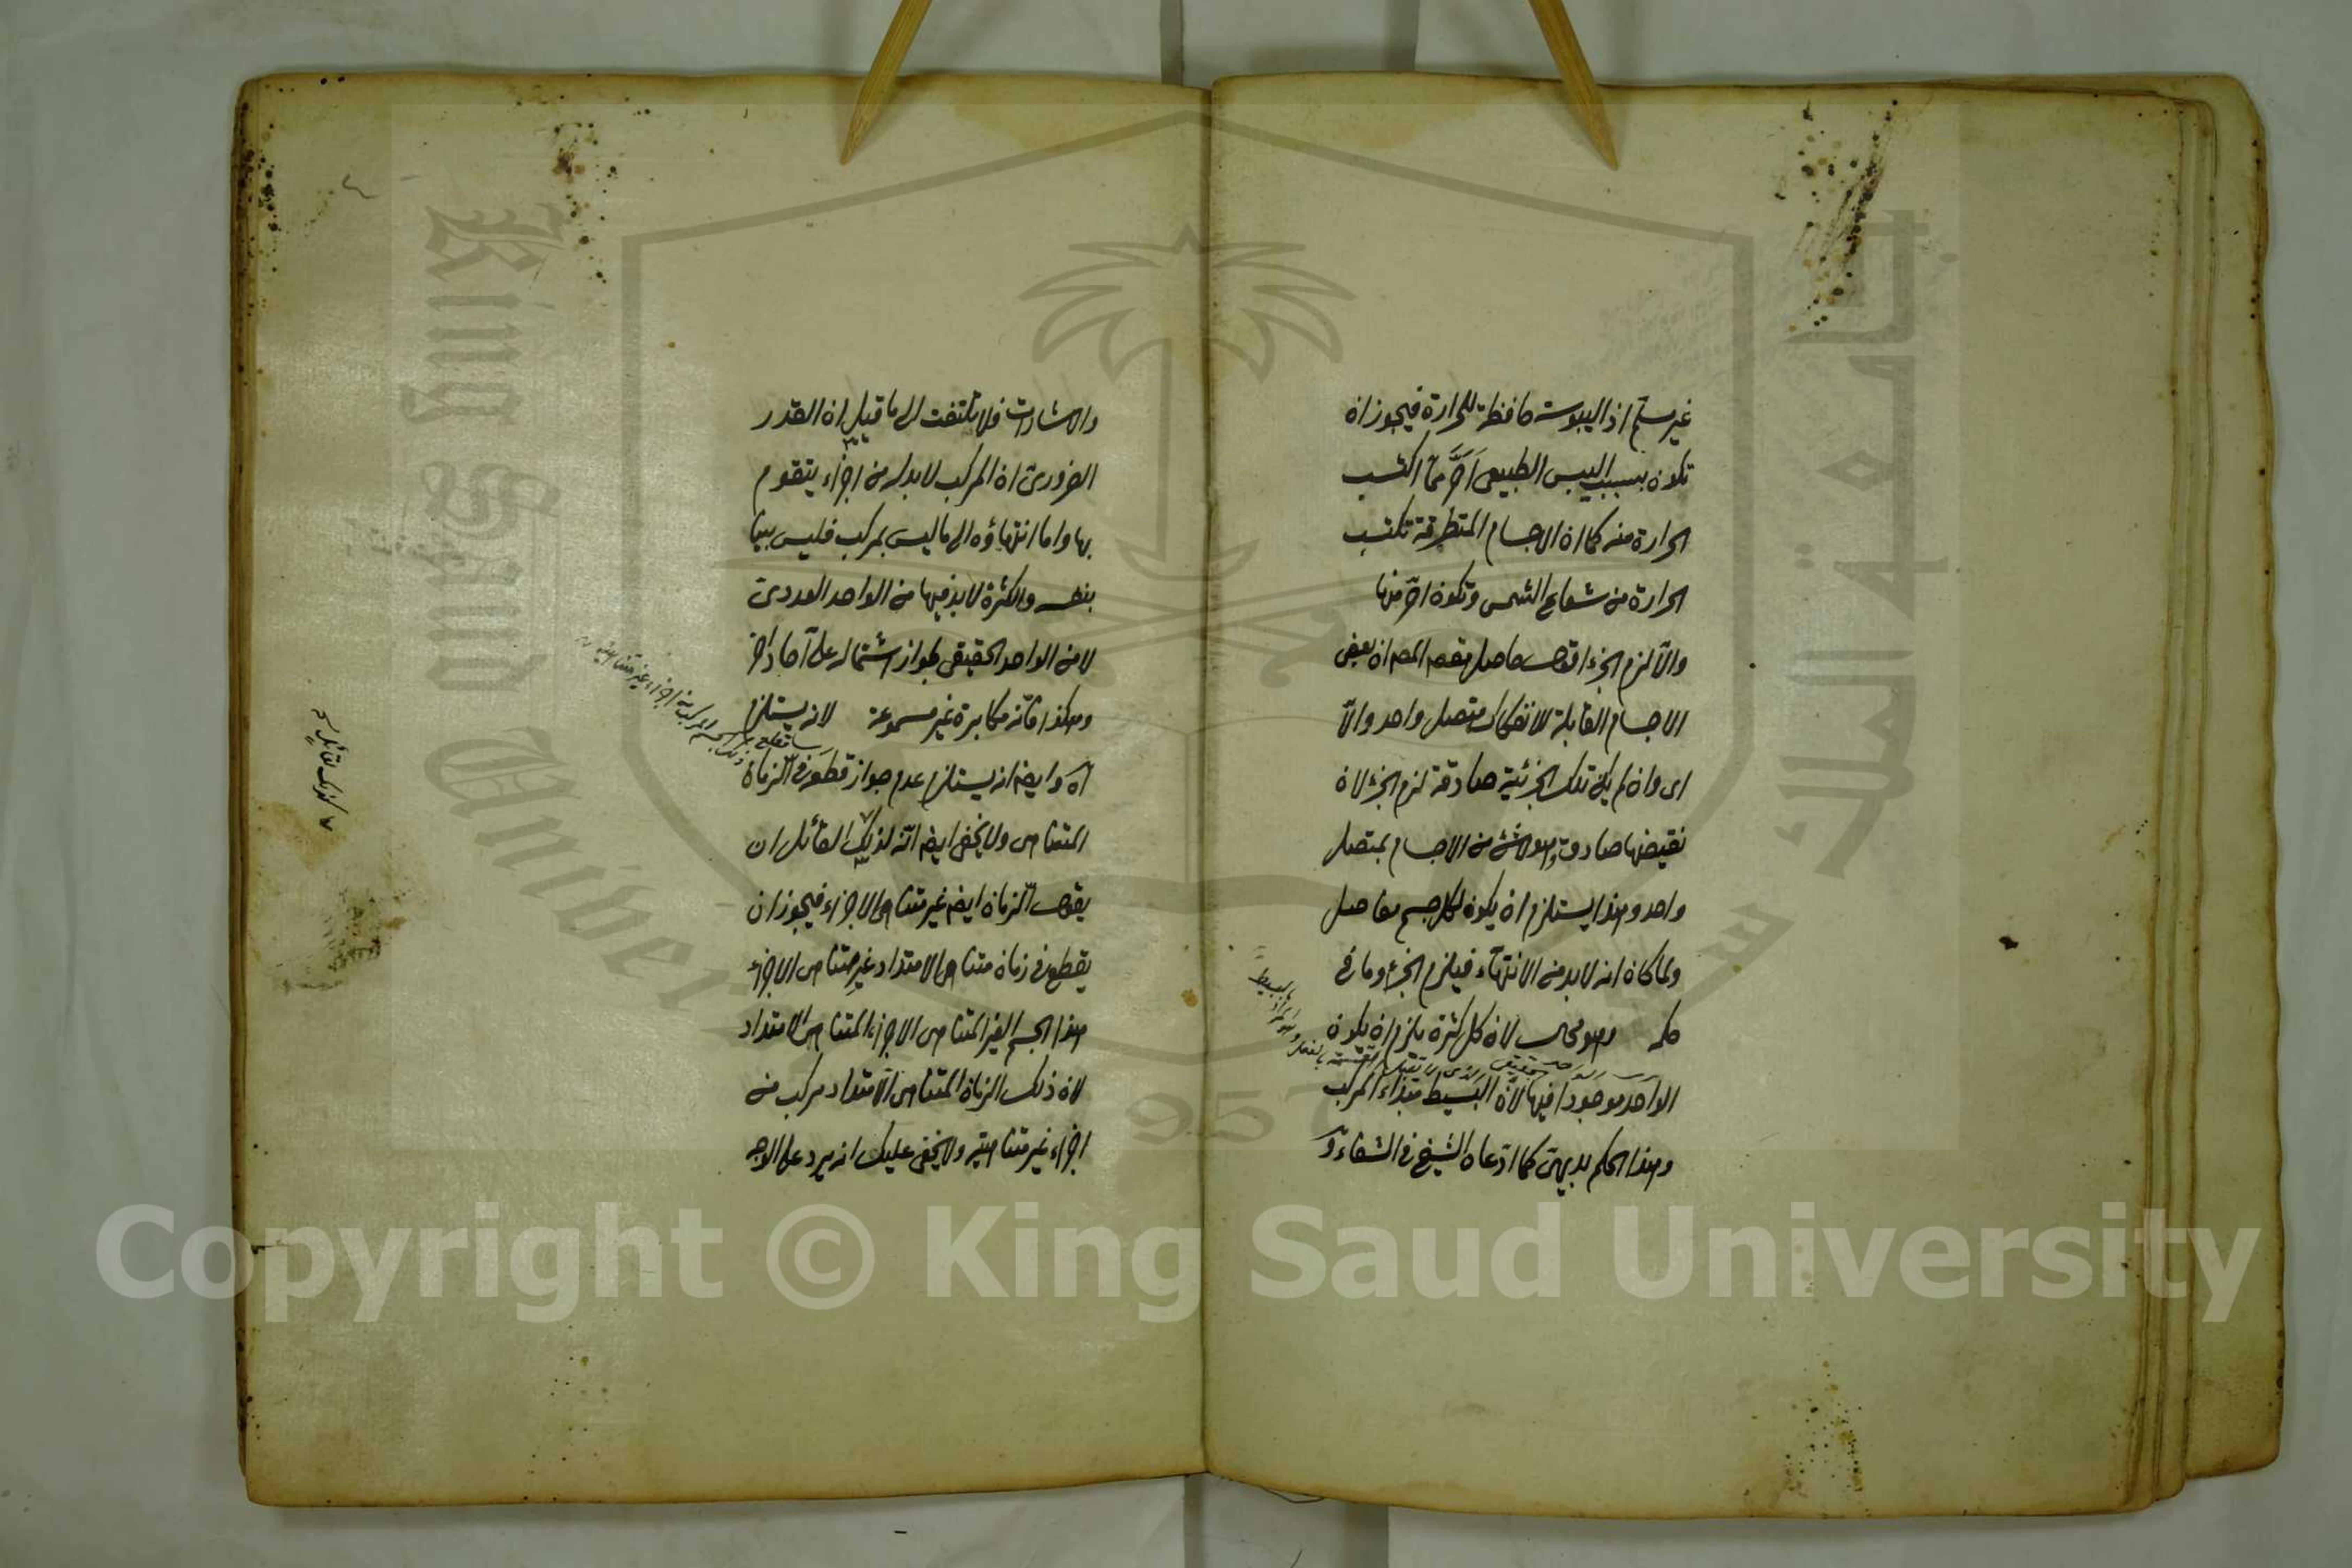 غير مسلم اذ اليبوسة حافظة للحرارة فيجوز ان
تكون بسبب اليبس الطبيعي احر مما اكتسب
الحرارة منه كما ان الاجسام المتطرقة تكتسب
الحرارة من شعاع الشمس وتكون احر منها
والا لزم الجزء اقول حاصل مقصد المص ان بعض
الاجسام القابلة للانفكاك متصل واحد والا
اى وان لم يكن تلك الجزئية صادقة لزم الجزء لان
نقيضها صادق وهو لا شئ من الاجسام بمتصل
واحد وهذا يستلزم ان يكون لكل جسم مفاصل
ولما كان انه لابد من الانتهاء فيلزم الجزء وما فى
حكمه وهو محال لان كل كثرة يلزم ان يكون
الواحد موجودا فيها لان البسيط مبداء المركب
وهذا الحكم بديهى كما ادعاه الشيخ فى الشفاء و
والاشارات فلا تلتفت الى ما قيل ان القدر
الضرورى ان المركب لابد له من اجزاء يتقوم
بها واما انتهاؤه الى ما ليس بمركب فليس بينا
بنفسه والكثرة لابد فيها من الواحد العددى
لا من الواحد الحقيقى لجواز اشتماله على آحاد اخر
وهكذا فانه مكابرة غير مسموعة لانه يستلزم
آه وايضا انه يستلزم عدم جواز قطعه فى الزمان
المتناهى ولا يخفى ايضا انه لذلك القائل ان
يقول الزمان ايضا غير متناهى الاجزاء فيجوز ان
يقطع فى زمان متناهى الامتداد غير متناهى الاجزاء
هذا الجسم الغير المتناهى الاجزاء المتناهى الامتداد
لان ذلك الزمان المتناهى الامتداد مركب من
اجزاء غير متناهية ولا يخفى عليك انه يرد على الاوجه
King Saud University
جامعة الملك سعود
1957
Copyright © King Saud University